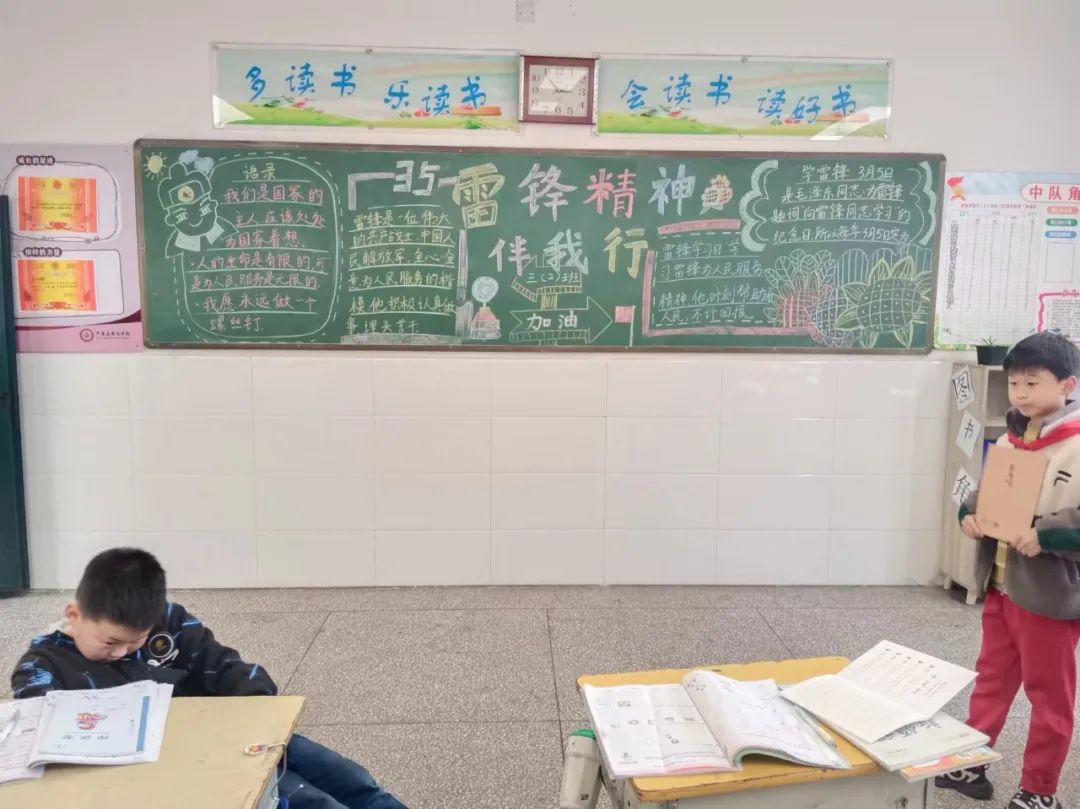 多读书 乐读书
会读书 读好书
成长的足迹
榜样的力量
中队角
语录
我们是国家的
主人应该处处
为国家着想.
·人的生命是有限的,可
是为人民服务是无限的.
·我愿永远做一个
螺丝钉.
35
雷锋精神
伴我行
三(2)班
加油
雷锋是一位伟大
的共产战士,中国人
民解放军,全心全
意为人民服务的楷
模,他积极认真做
事埋头苦干
学雷锋 3月5日
是毛泽东同志为雷锋
题词向雷锋同志学习的
纪念日所以每年3月5日定为
雷锋学习日,学
习雷锋为人民服务
精神,他时刻帮助
人民,不计回报.
图
书
角
12